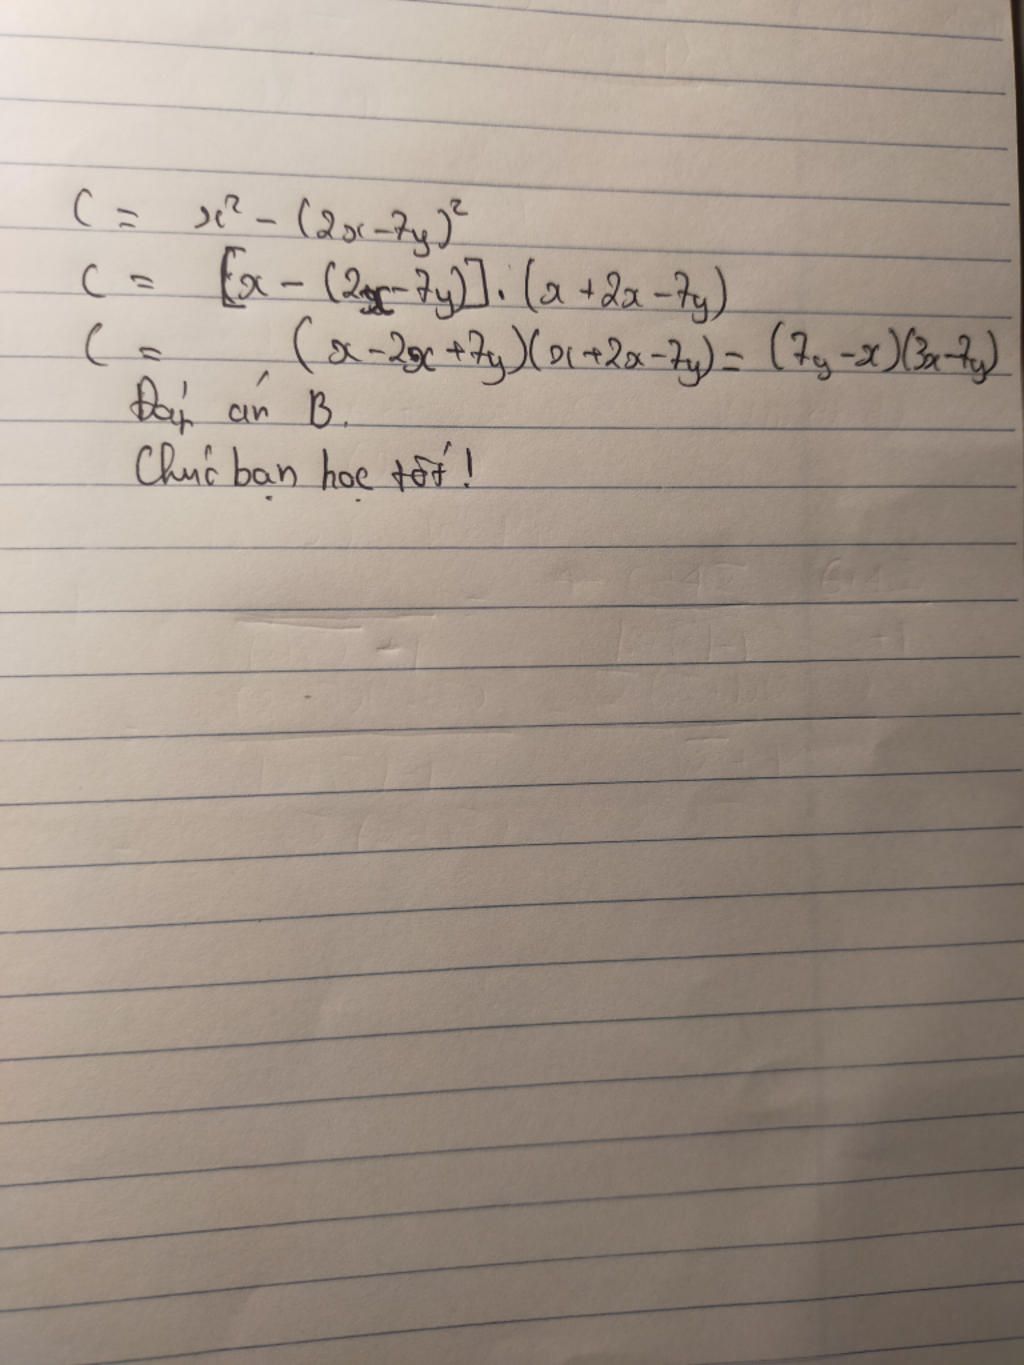 C = x² - (2x-7y)²
C = [x - (2x-7y)].(x+2x-7y)
C = (x-2x+7y)(x+2x-7y) = (7y-x)(3x-7y)
Đáp án B.
Chúc bạn học tốt!